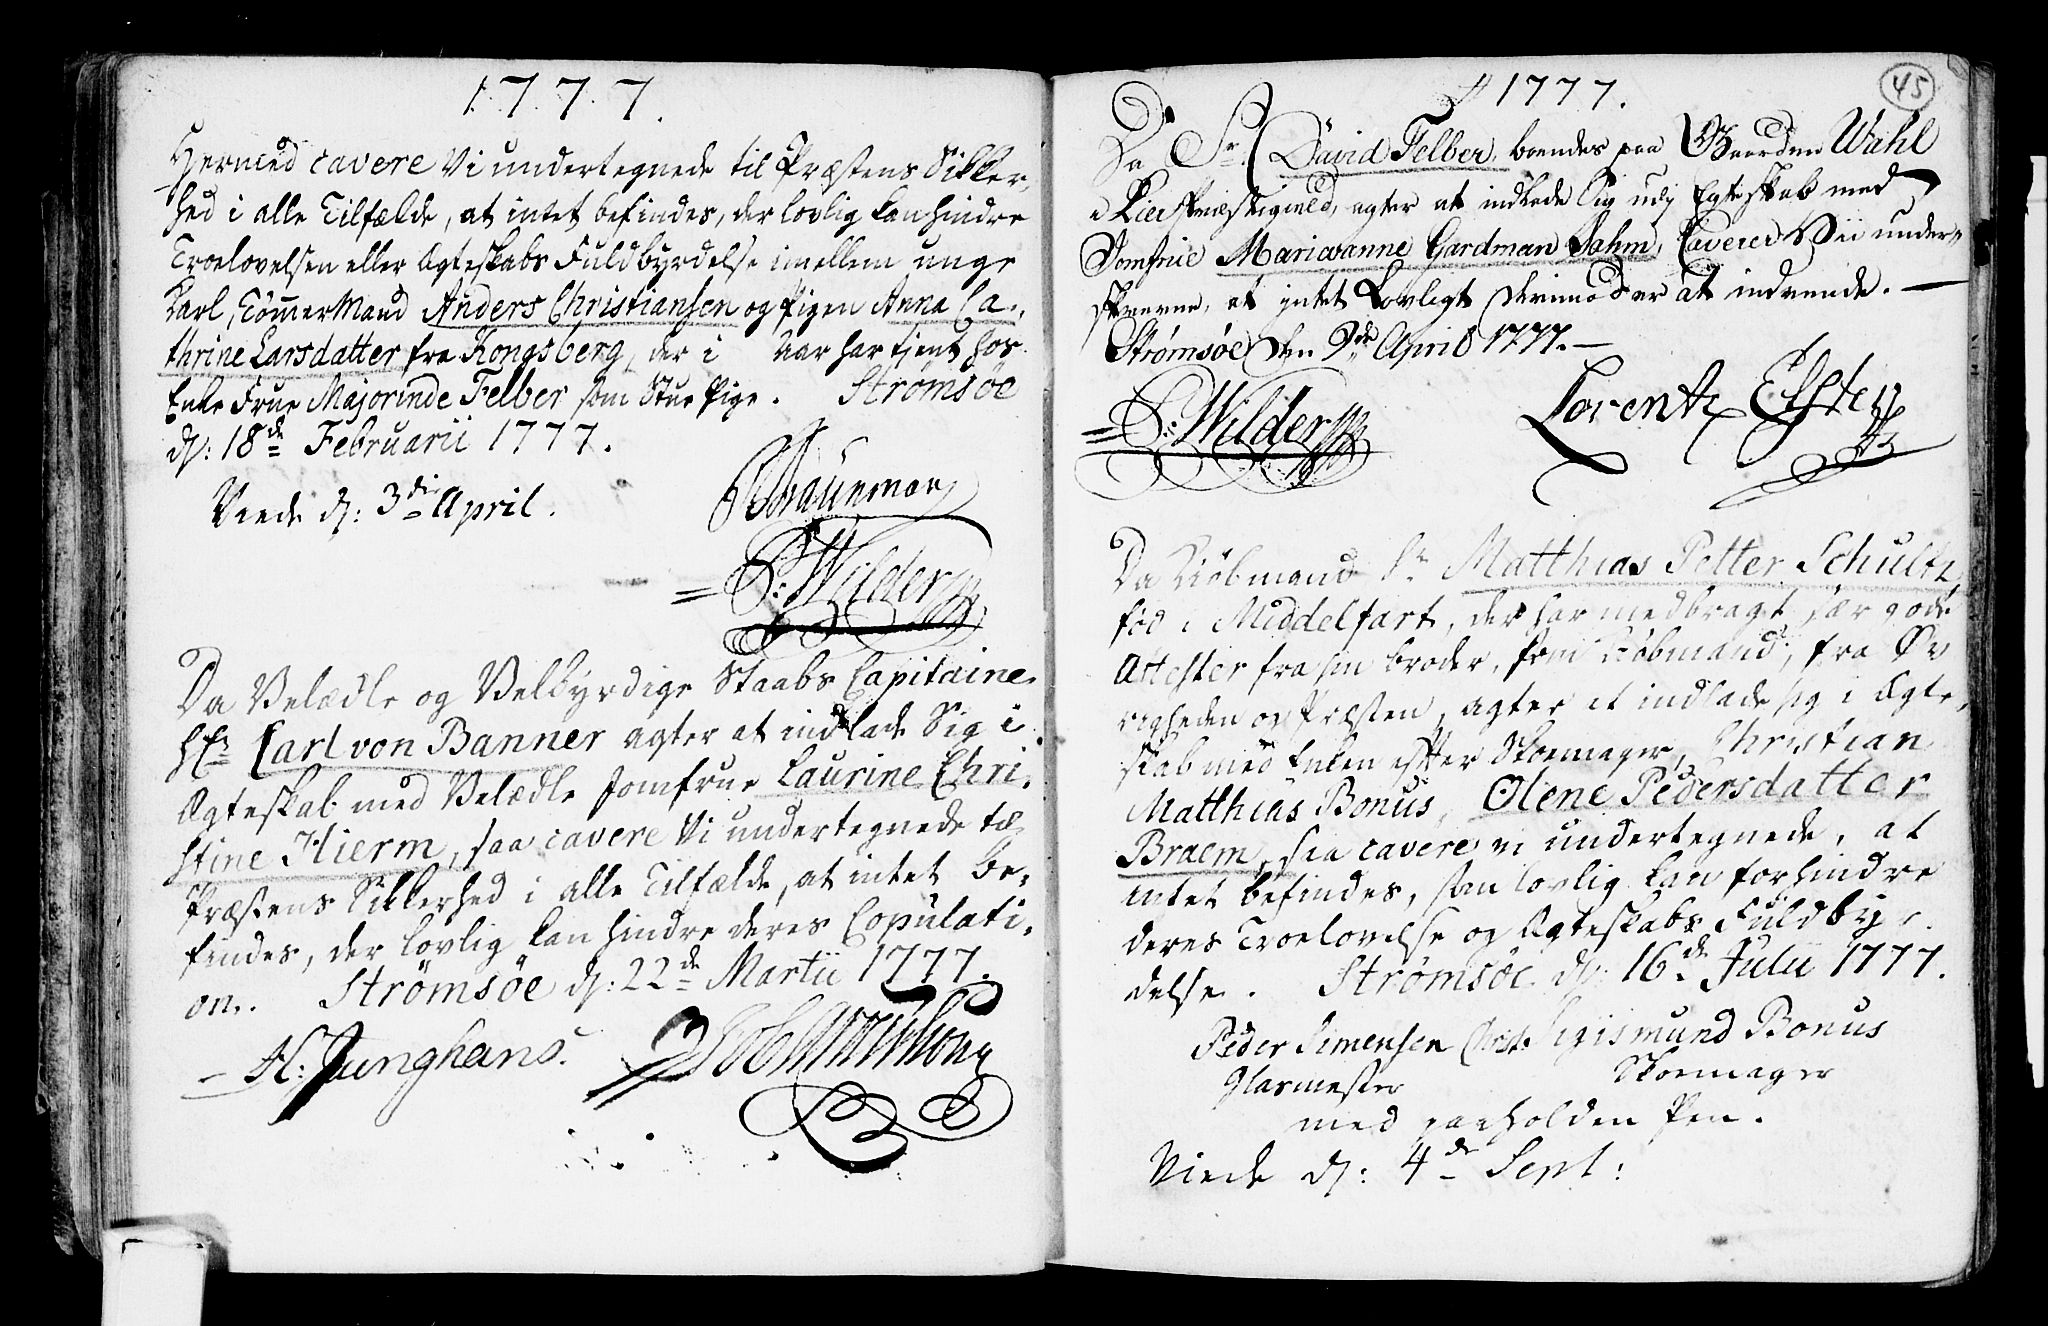 1777.
Hermed cavere Vi undertegnede til Præstens Sikker,
hed i alle Tilfælde, at intet befindes, der lovlig kan hindre
Troelovelsen eller Ægteskabs Fuldbyrdelse imellem unge
Karl, Tømmer Mand Anders Christiansen og Pigen Anna Ca,
thrine Larsdatter fra Kongsberg, der i Aar har tjent hos
Enke Frue Majorinde Felber som Stue Pige. Strømsöe
d: 18de Februarii 1777.
Viede d: 3die April.
Braunman
P: Wilder
Da Velædle og Velbyrdige Staabs Capitaine
Hr Carl von Banner agter at indlade Sig i
Ægteskab med Velædle Jomfrue Laurine Chri,
stine Hierm, saa cavere Vi undertegnede til
Præstens Sikkerhed i alle Tilfælde, at intet be,
findes, der lovlig kan hindre deres Copulati,
on. Strömsöe d: 22de Martii 1777.
H: Junghans.
1777.
45
Da Sr David Felber, boendes paa Gaarden Wahl
i Lier Præstegield, agter at indlade Sig udj Egteskab med
Jomfrue Marieanne Gardman Sahm, Caverer Vii under,
skrevne, at intet Lovligt derimod er at indvende. —
Strømsøe den 9de April 1777. —
P: Wilder
Lorentz Elster
Da Kiöbmand Sr Matthias Petter Schultz
föd i Middelfart, der har medbragt sær gode
Attester fra sin broder, som Kiöbmand, fra Øv
righeden og Præsten, agter at indlade sig i Ægte,
skab med Enken efter Skoemager, Christian
Matthias Bonus, Olene Pedersdatter
Braem, saa cavere vi undertegnede, at
intet befindes, som lovlig kan forhindre
deres Troelovelse og Ægteskabs Fuldbyr,
delse. Strømsöe d: 16de Julii 1777.
Peder Simensen Christ: Sigismund Bonus
Glasmester Skoemager
med paaholden Pen.
Viede d: 4de Sept: